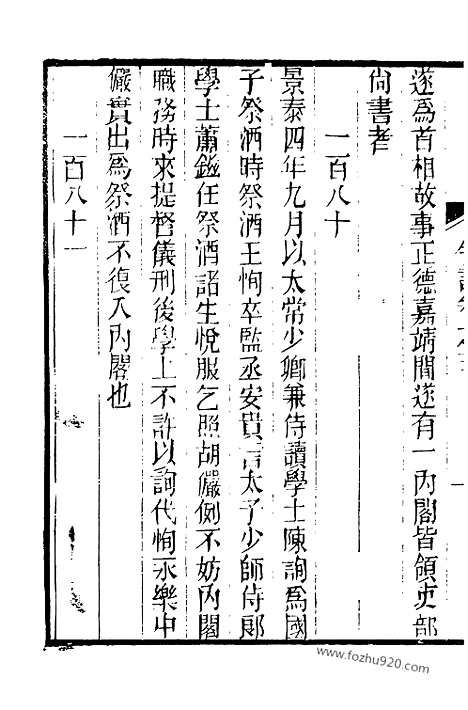 遂為首相故事正德嘉靖間遂有一內閣皆領吏部
尙書者
一百八十
景泰四年九月以太常少卿兼侍讀學士陳詢為國
子祭酒時祭酒王恂卒監丞安貴言太子少師侍郞
學士蕭鎡任祭酒諸生悅服乞照胡儼例不妨內閣
職務時來提督儀刑後學上不許以詢代恂永樂中
儼實出為祭酒不復入內閣也
一百八十一
www.fozhu920.com